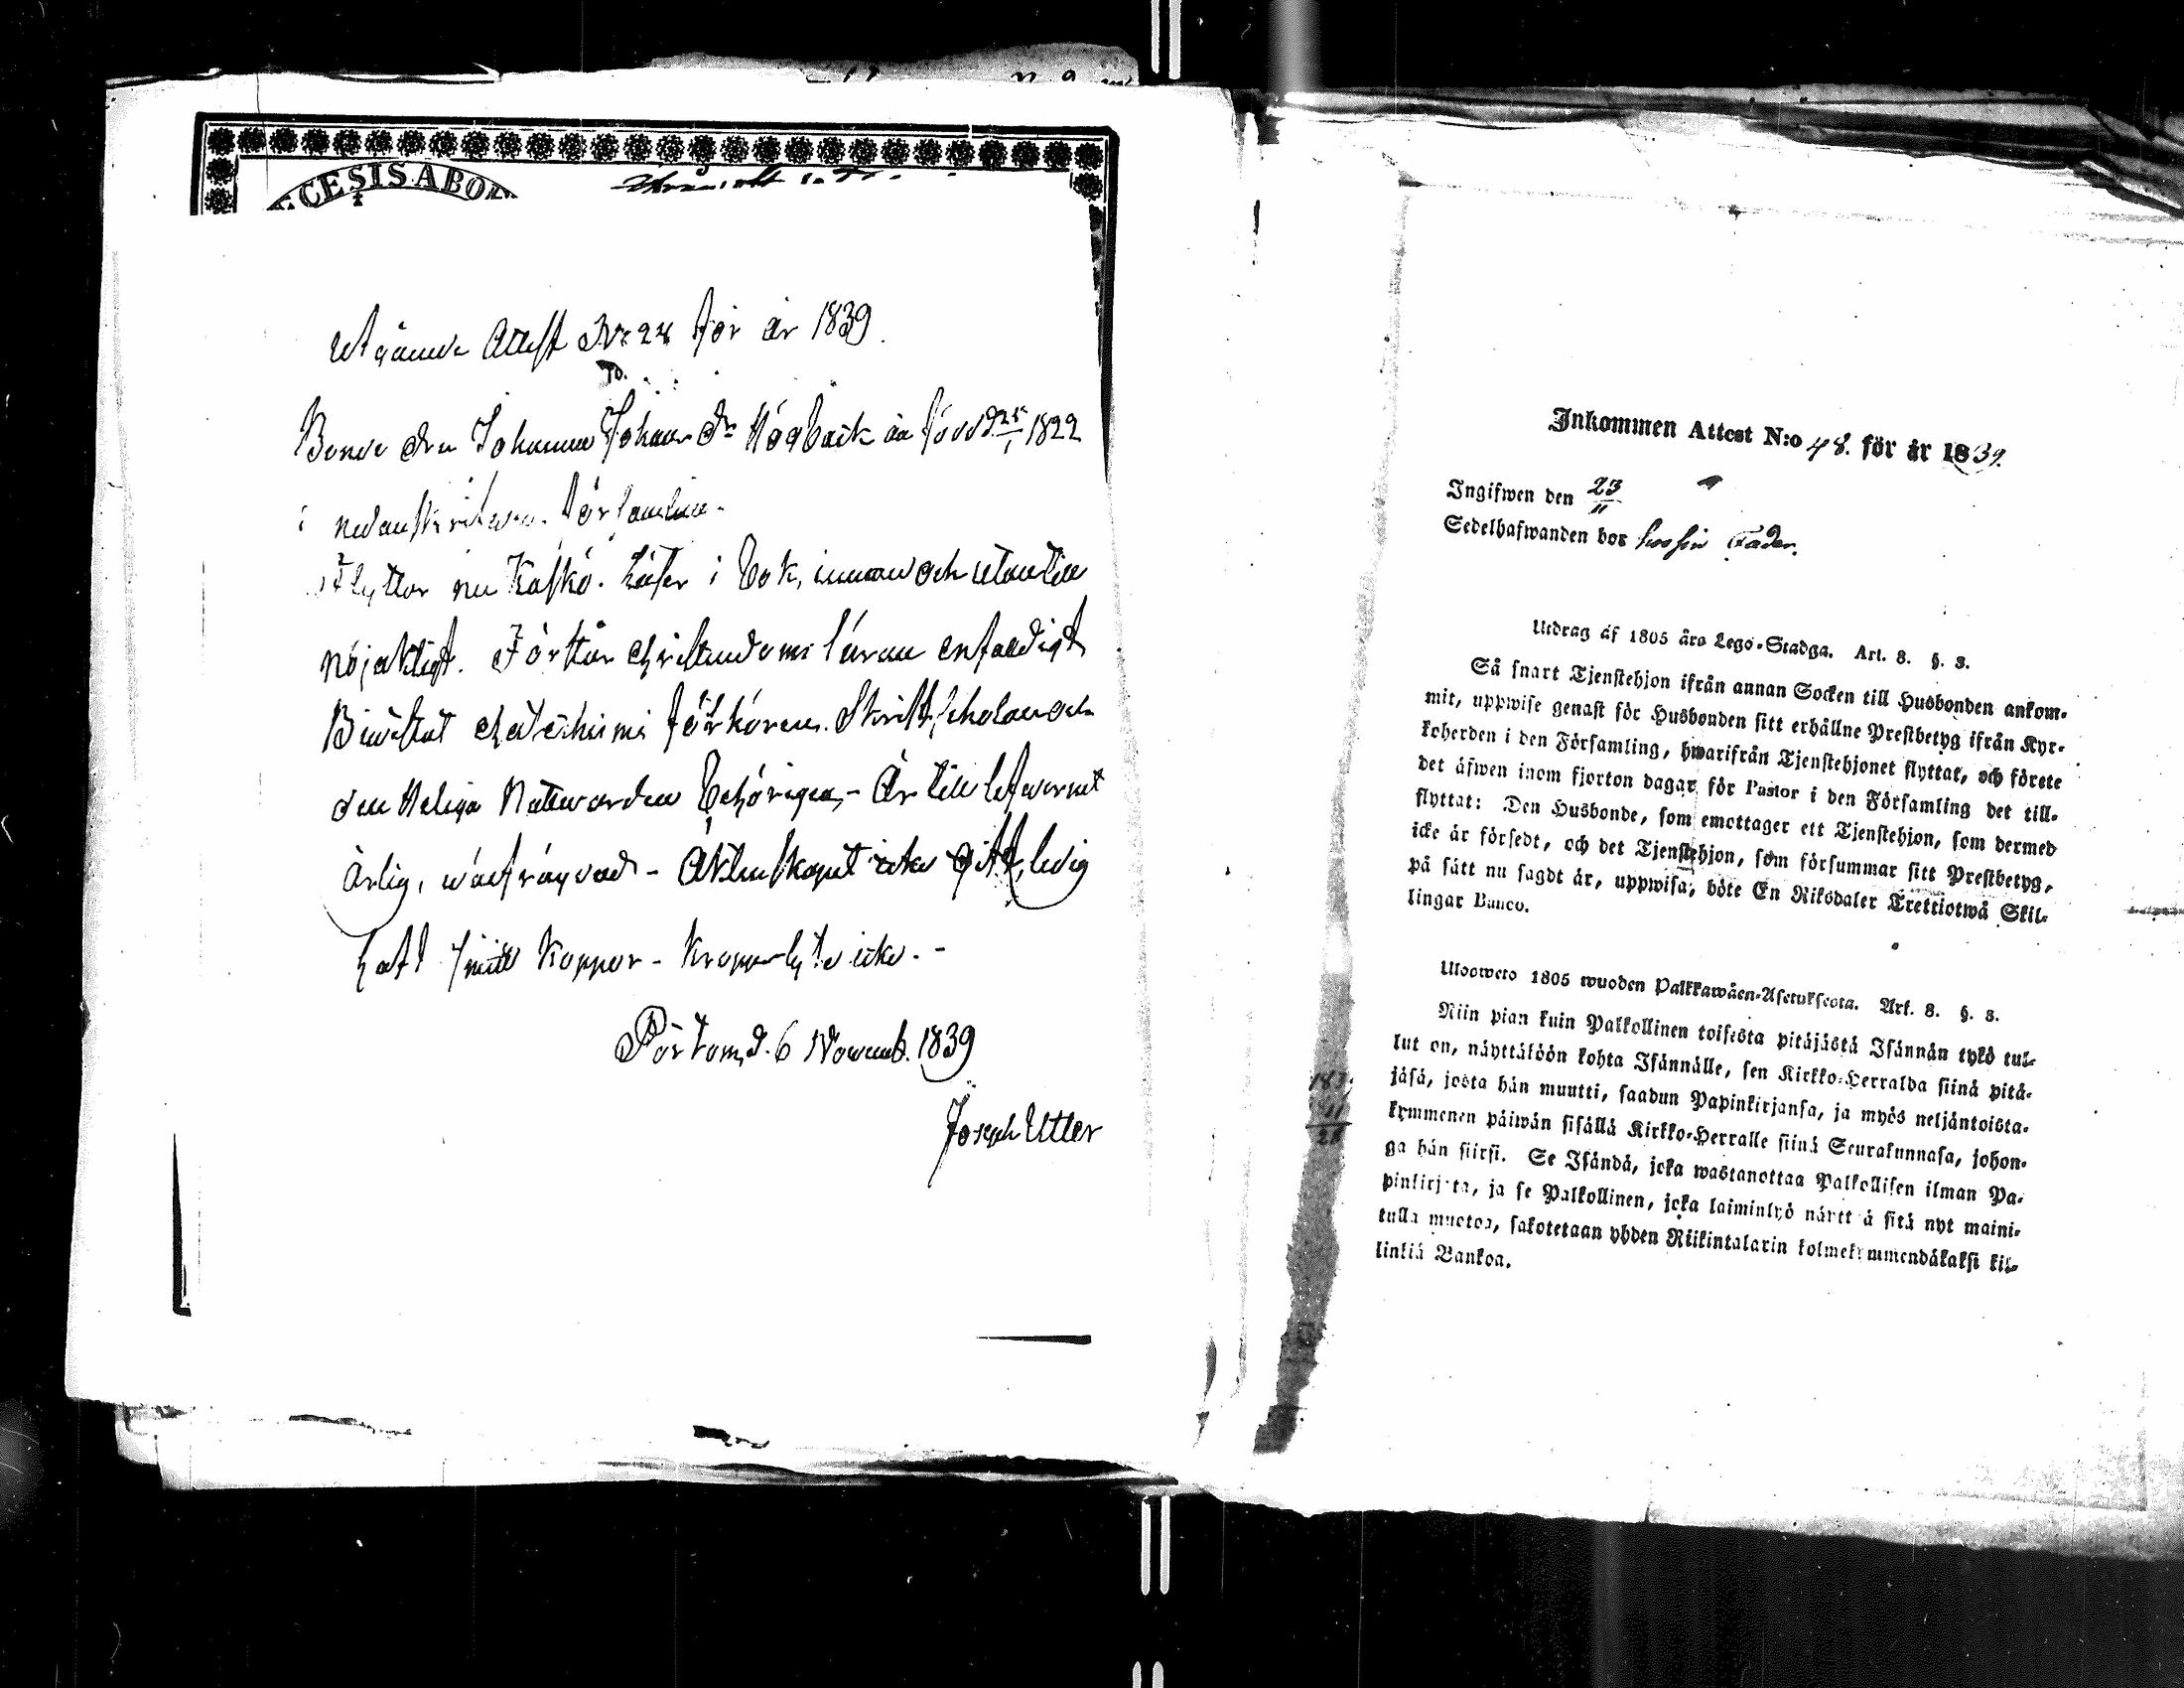 CESIS ABO
Utgånde Attest No 24 för år 1839.
Bonde dr Johanna Johans dr Högback är född 25/1 1822
i nedanskrifwen församling.
Flyttar nu Kaskö. Läser i bok, innan och utantill
nöjaktigt. Förstår Christendoms läran enfaldigt
Biwistat Catechismi förhören. Skriftskolan och
den Heliga Nattwarden behörigen, - Är till lefwernet
ärlig, wälfrägdad - Äktenskapet icke gift, ledig
haft koppor - Kropps lyte icke. -
Pörtom, d. 6 Novemb. 1839
Joseph Utter
Inkommen Attest N:o 48. för år 1839.
Ingifwen den 23/11
Sedelhafwanden bor hos sin Fader.
Utdrag af 1805 års Lego-Stadga. Art. 8. §. 3.
Så snart Tjenstehjon ifrån annan Socken till Husbonden ankom-
mit, uppwise genast för Husbonden sitt erhållne Prestbetyg ifrån Kyr-
koherden i den Församling, hwarifrån Tjenstehjonet flyttat, och förete
det äfwen inom fjorton dagar för Pastor i den Församling det till-
flyttat: Den Husbonde, som emottager ett Tjenstehjon, som dermed
icke är försedt, och det Tjenstehjon, som försummar sitt Prestbetyg,
på sätt nu sagdt är, uppwisa, böte En Riksdaler Trettiotwå Skil-
lingar Banco.
Ulosweto 1805 wuoden Palkkawäen-Asetuksesta. Art. 8. §. 3.
Niin pian kuin Palkollinen toisesta pitäjästä Isännän tykö tul-
lut on, näyttäköön kohta Isännälle, sen Kirkko-Herralda siinä pitä-
jäsä, josta hän muutti, saadun Papinkirjansa, ja myös neljäntoista-
kymmenen päiwän sisällä Kirkko-Herralle siinä Seurakunnasa, johon-
ga hän siirsi. Se Isändä, joka wastanottaa Palkollisen ilman Pa-
pinkirjata, ja se Palkollinen, joka laiminlyö näyttää sitä nyt maini-
tulla muotoa, sakotetaan yhden Riikintalarin kolmekymmendäkaksi kil-
linkiä Bankoa.